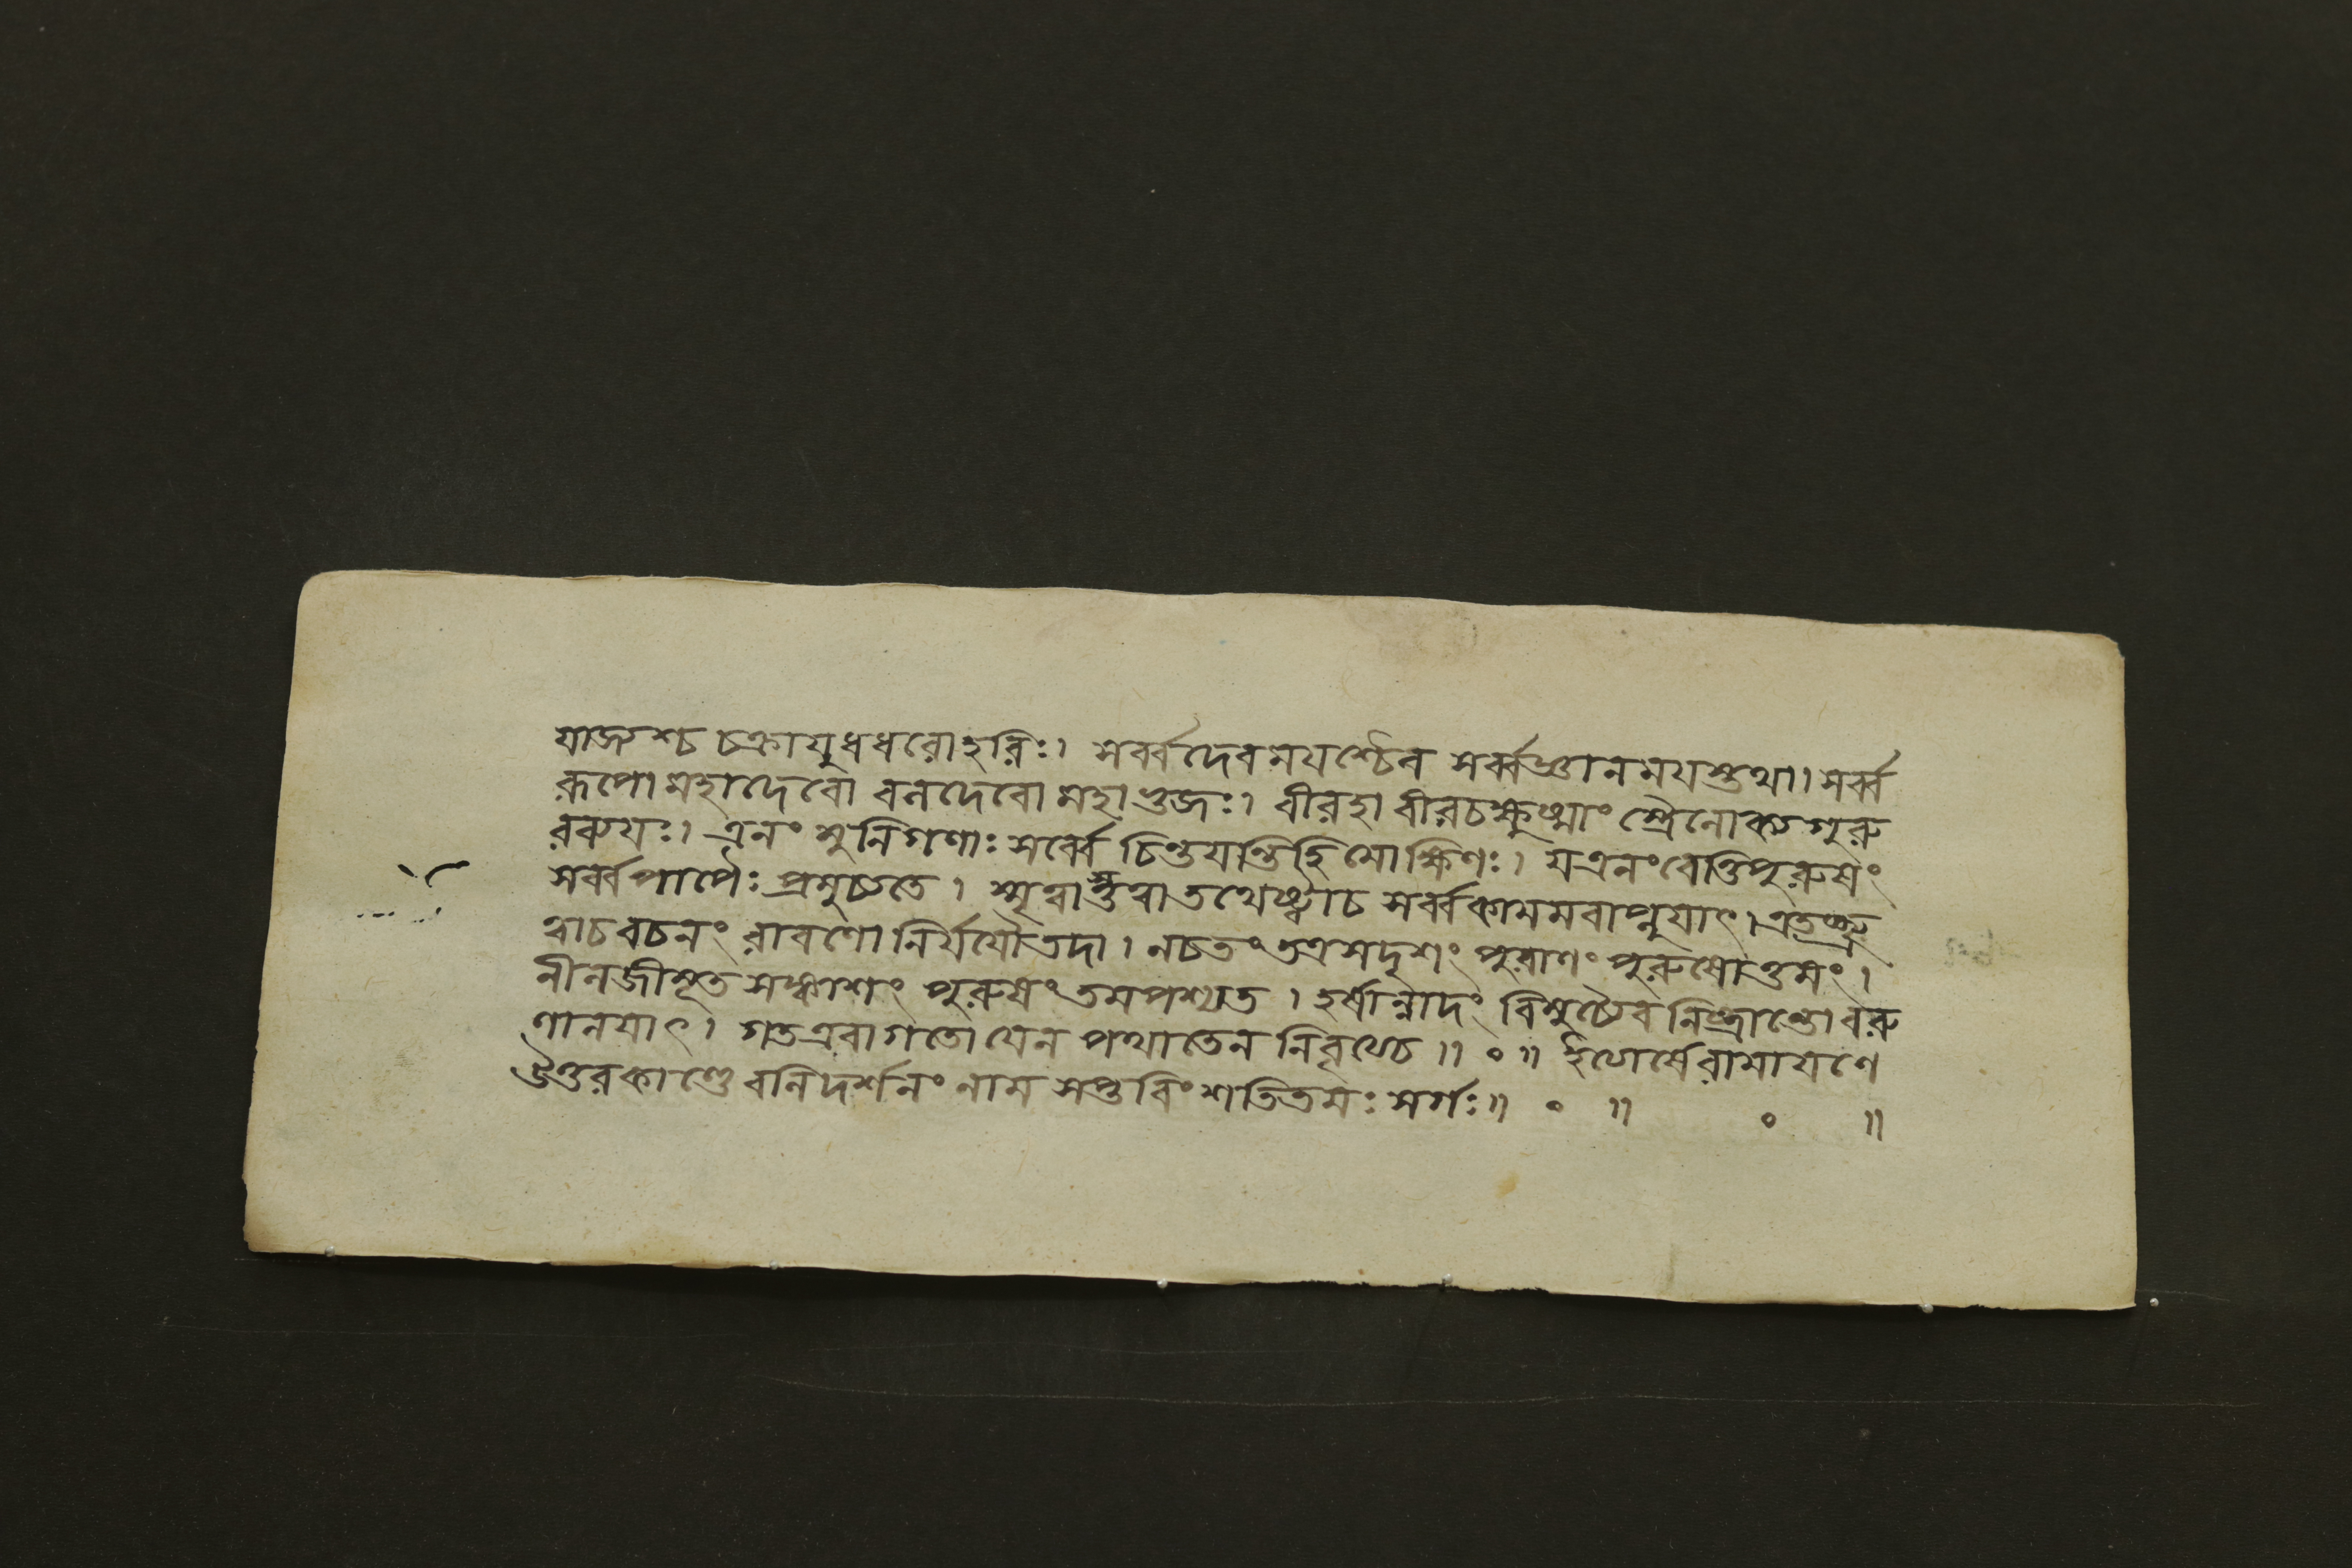 যাজ্যশ্চ চক্রাযুধধরোহরিঃ। সর্ব্বদেবময়শ্চৈব সর্ব্বজ্ঞানময়স্তথা। সর্ব্ব
রূপো মহাদেবো বলদেবো মহাভুজঃ। বীরহা বীরচক্ষুষ্মাং স্ত্রৈলোক্যগুরু
রব্যয়ঃ। এনং মুনিগণাঃ সর্ব্বে চিন্তয়ন্তিহি মোক্ষিণঃ। যএনংবেত্তিপুরুষং
সর্ব্বপাপৈঃ প্রমুচ্যতে। স্মৃত্বাস্তুত্বাতথেষ্ট্বাচ সর্ব্বকামমবাপ্নুয়াৎ। এতচ্ছ্রু
ত্বাচবচনং রাবণো নির্যযৌতদা। নচতং তত্রসদৃশং পুরাণং পুরুষোত্তমং।
নীলজীমূতসঙ্কাশং পুরুষং তমপশ্যত। হর্ষান্নাদং বিমুচ্যৈব নিষ্ক্রান্তো বরু
ণালয়াৎ। গতএবাগতো যেন পথাতেন নিবৃত্যচ॥ ০ ॥ ইত্যার্ষেরামায়ণে
উত্তরকাণ্ডে বলিদর্শনং নাম সপ্তবিংশতিতমঃ সর্গঃ॥ ০ ॥ ০ ॥